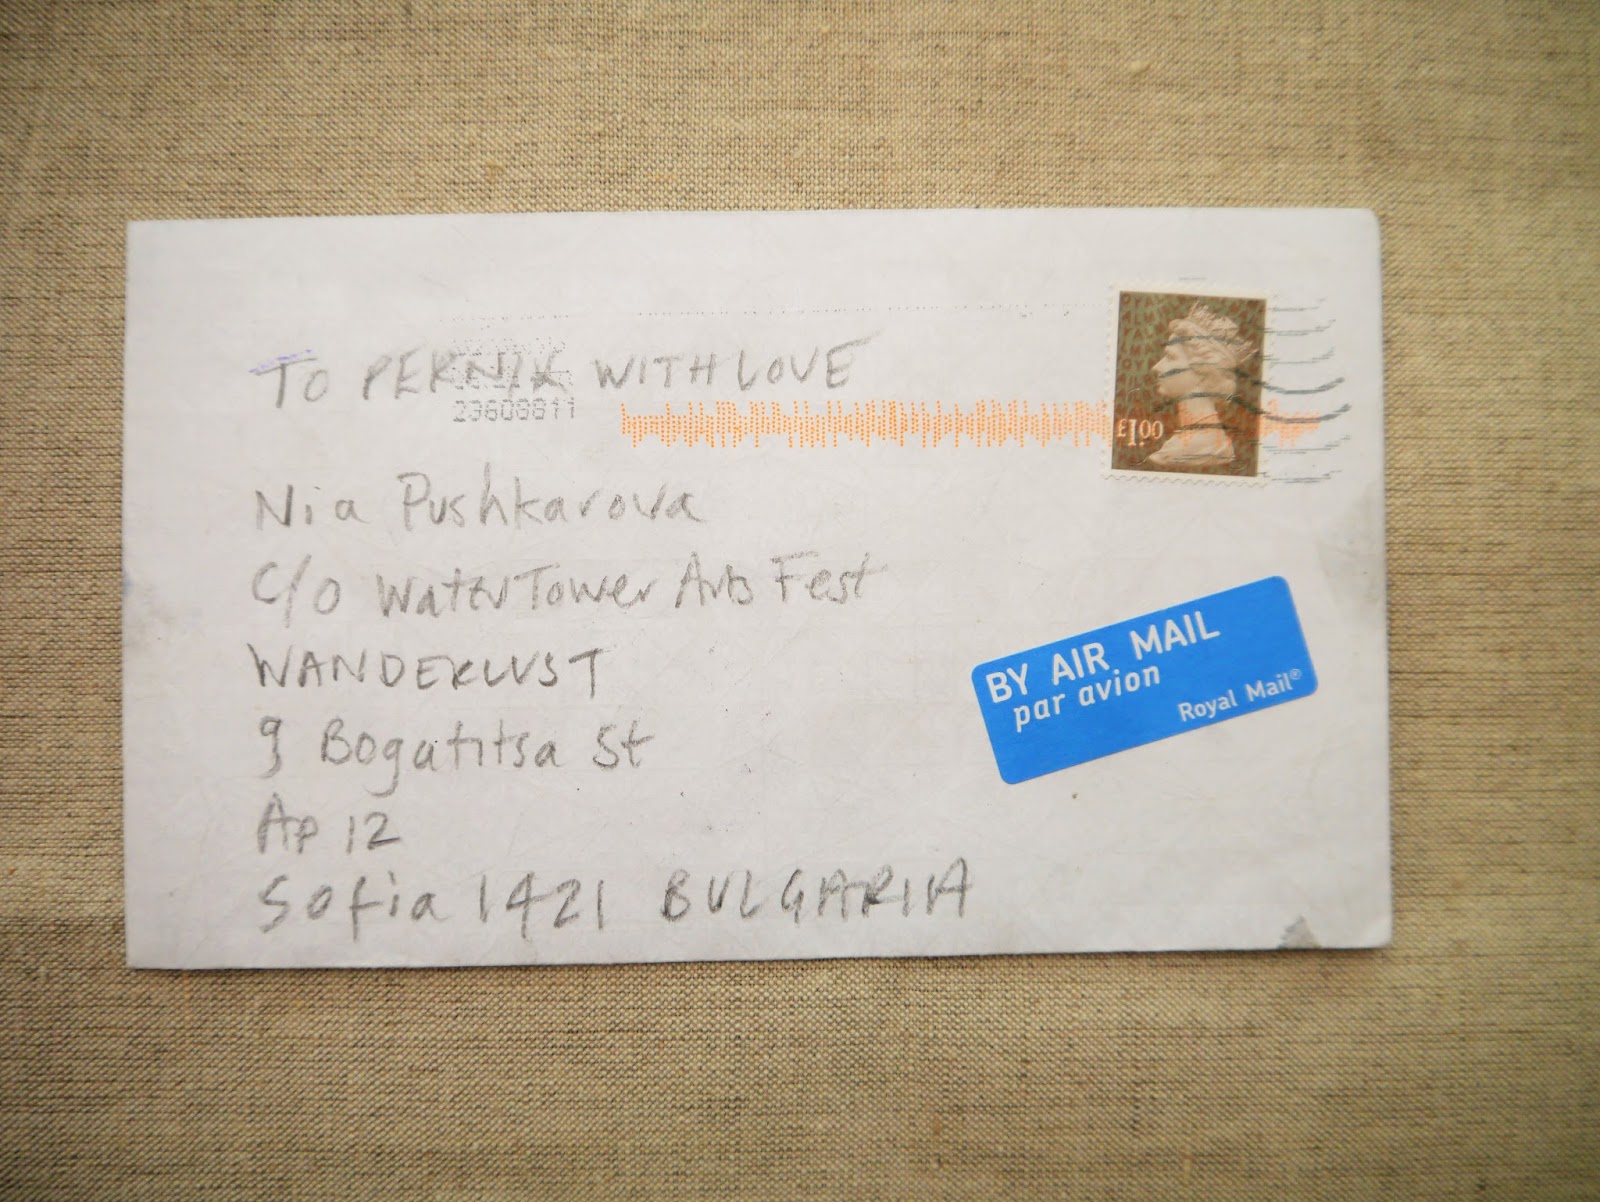 TO PERNIK WITH LOVE
23608811
£1.00
Nia Pushkarova
C/O WaterTower Arts Fest
WANDERLUST
9 Bogatitsa St
Ap 12
Sofia 1421 BULGARIA
BY AIR MAIL
par avion
Royal Mail®